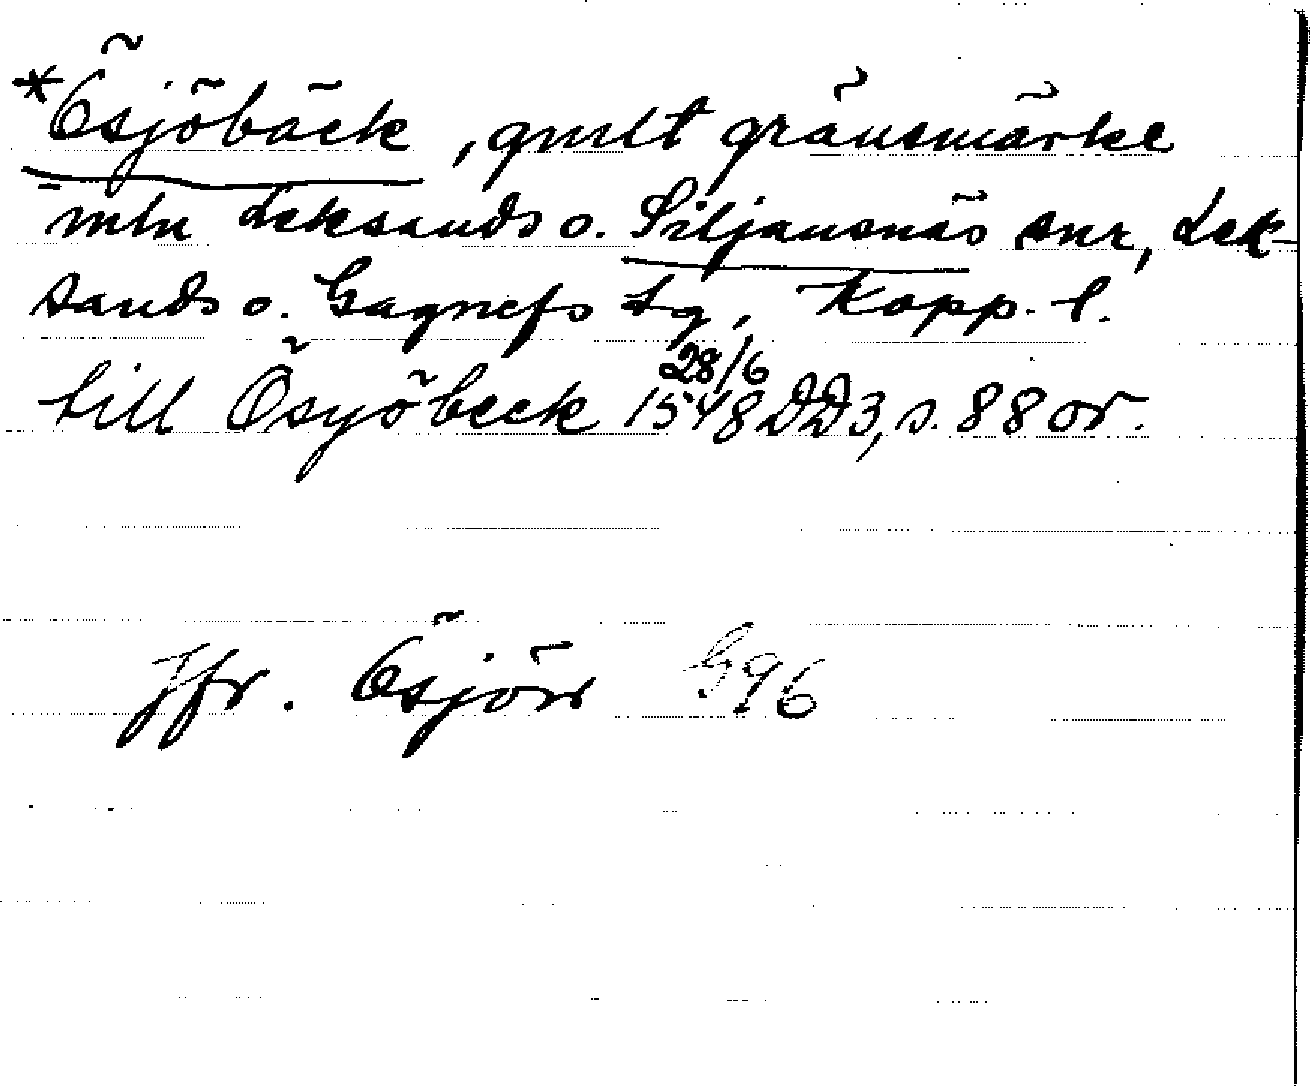 *Ösjöbäck, gmlt gränsmärke
mln Leksands o. Siljansnäs snr, Lek-
sands o. Gagnefs tg, Kopp. l.
till Ösyöbeck 28/6 1548 DD3, s. 88 or.
Jfr. Ösjön G96